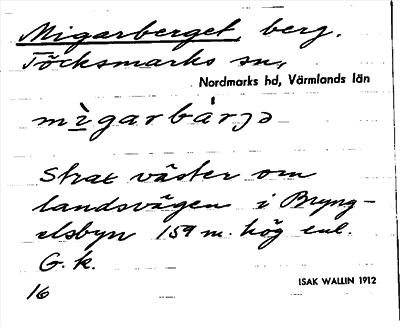 Migarberget, berg.
Töcksmarks sn.,
Nordmarks hd, Värmlands län
mìgarbárjə
Strax väster om
landsvägen i Bryng-
elsbyn 159 m. hög enl.
G. k.
16
ISAK WALLIN 1912